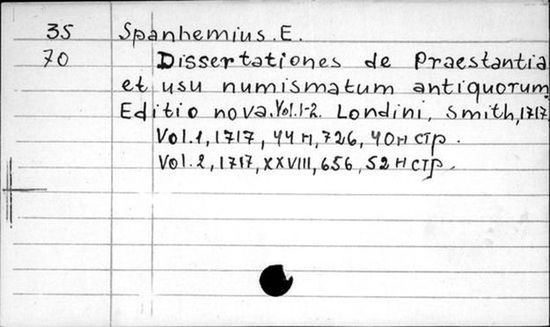 35 Spanhemius. E.
70 Dissertationes de Praestantia
et usu numismatum antiquorum
Editio nova. Vol. 1-2. Londini, Smith, 1717
Vol. 1, 1717, 44 н, 726, 40 н стр.
Vol. 2, 1717, XXVIII, 656, 52 н стр.